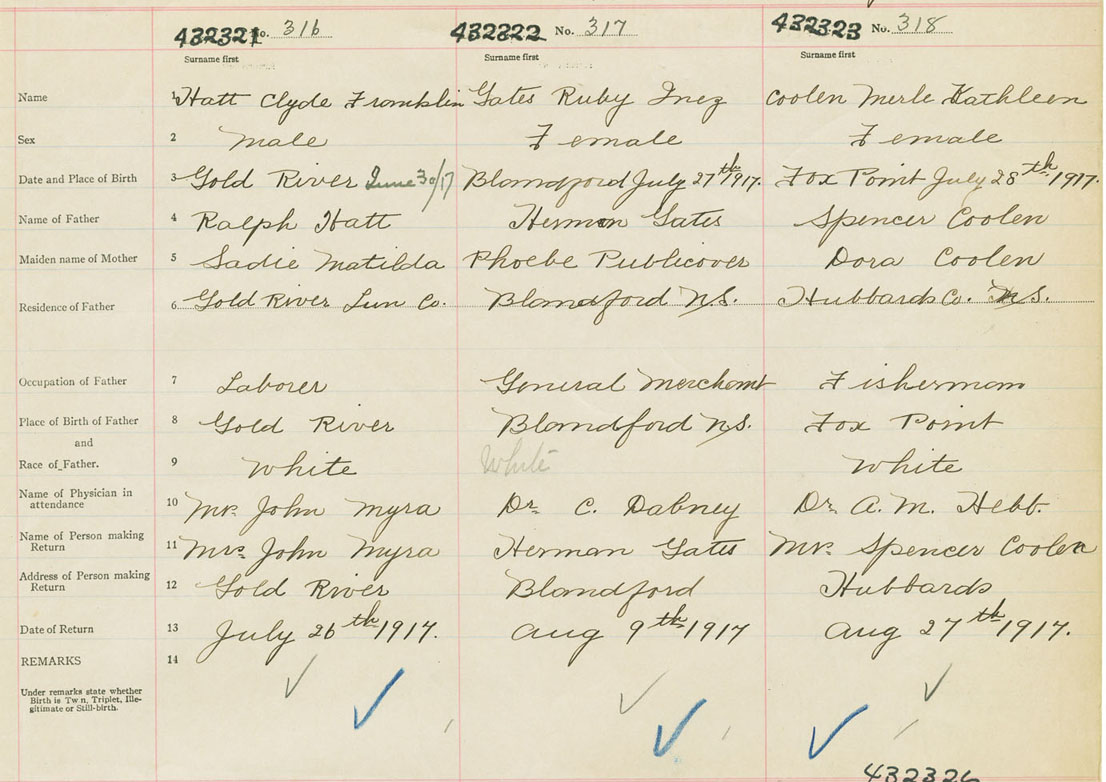 432321 No. 316 432322 No. 317 432323 No. 318
Surname first Surname first Surname first
Name 1 Hatt Clyde Franklin Gates Ruby Inez Coolen Merle Kathleen
Sex 2 Male Female Female
Date and Place of Birth 3 Gold River June 30/17 Blandford July 27th 1917. Fox Point July 28th 1917.
Name of Father 4 Ralph Hatt Herman Gates Spencer Coolen
Maiden name of Mother 5 Sadie Matilda Phoebe Publicover Dora Coolen
Residence of Father 6 Gold River Lun Co. Blandford N.S. Hubbards Co. N.S.
Occupation of Father 7 Laborer General Merchant Fisherman
Place of Birth of Father 8 Gold River Blandford N.S. Fox Point
and
Race of Father. 9 White White White
Name of Physician in
attendance 10 Mr. John Myra Dr. C. Dabney Dr. A. M. Hebb.
Name of Person making
Return 11 Mrs. John Myra Herman Gates Mr. Spencer Coolen
Address of Person making
Return 12 Gold River Blandford Hubbards
Date of Return 13 July 26th 1917. Aug 9th 1917 Aug 27th 1917.
REMARKS 14
Under remarks state whether
Birth is Tw n, Triplet, Ille-
gitimate or Still-birth.
432326